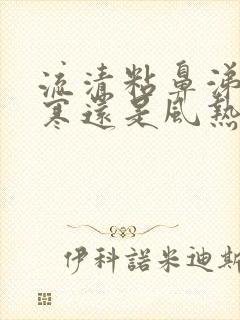 流清粘鼻涕
寒還是風熱
伊科諾米迪斯